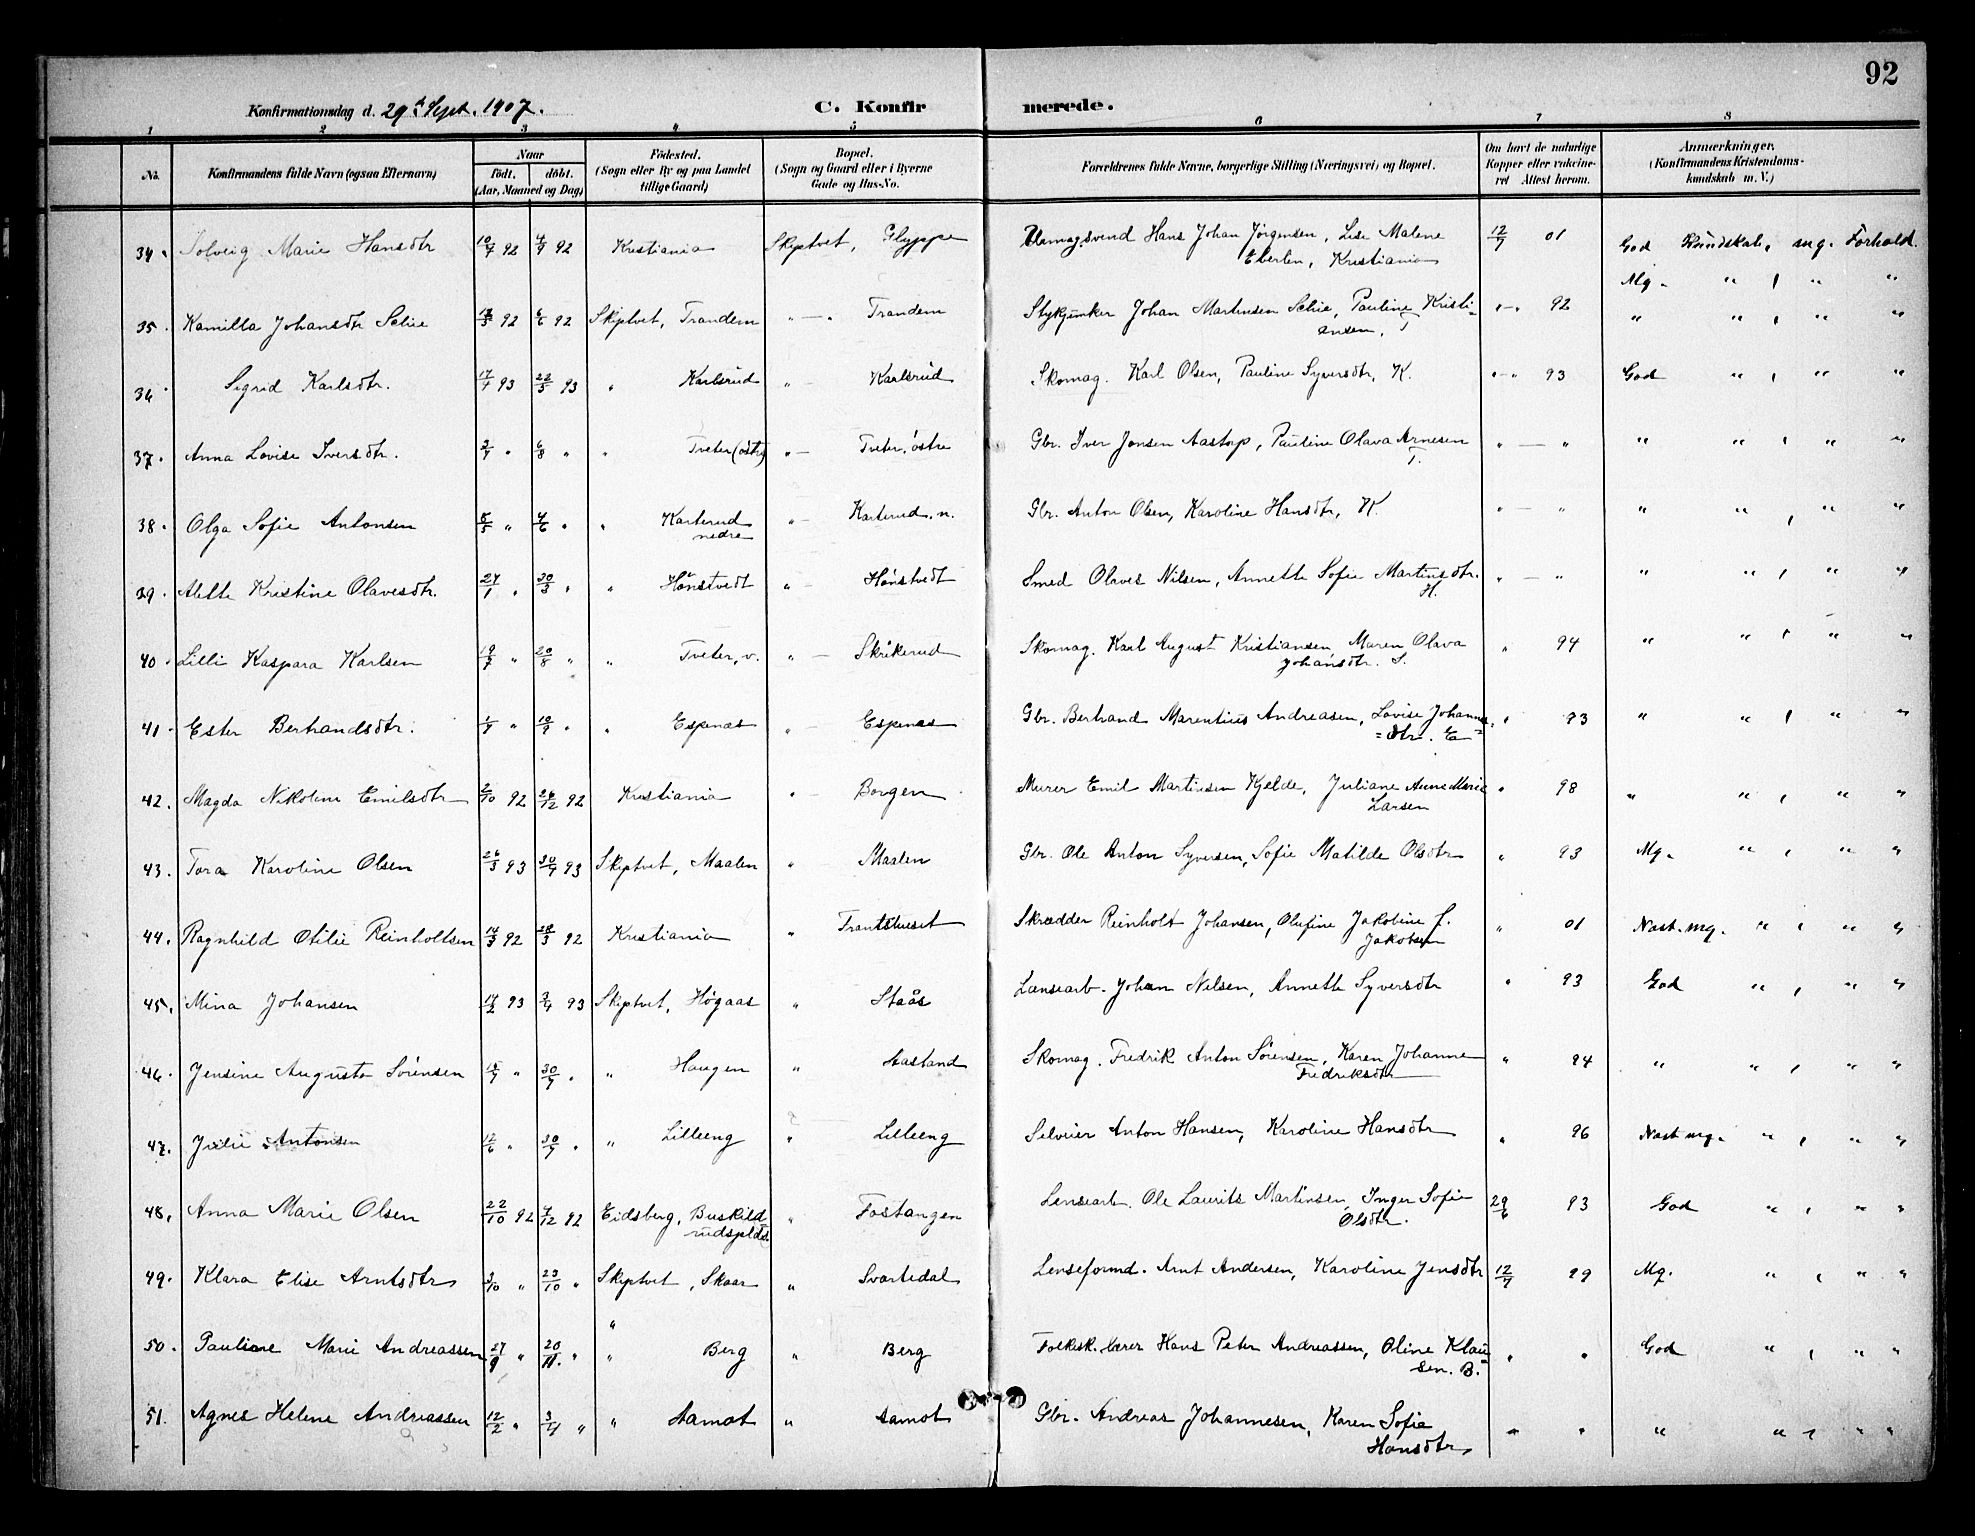 92
Konfirmationsdag d. 29de Sept. 1907.
C. Konfirmerede.
1 2 3 4 5 6 7 8
No.
Konfirmandens fulde Navn (ogsaa Efternavn)
Naar
födt. döbt.
(Aar, Maaned og Dag)
Födested.
(Sogn eller By og paa Landet
tillige Gaard)
Bopæl.
(Sogn og Gaard eller i Byerne
Gade og Hus-No.
Forældrenes fulde Navne, borgerlige Stilling (Næringsvei) og Bopæl.
Om havt de naturlige
Kopper eller vakcine-
ret Attest herom.
Anmærkninger.
(Konfirmandens Kristendoms-
kundskab m. V.)
34. Solveig Marie Hansdtr 10/7 92 4/9 92 Kristiania Skiptvet, Glyppe Hans Johan Jørgensen, Lise Malene 12/7 01 God Kundskab, mg. Forhold.
Eberlen, Kristiania
Mg. " , " "
35. Kamilla Johansdtr Schie 13/5 92 6/6 92 Skiptvet, Trandem " — " Trandem Stykjunker Johan Martinsen Schie, Pauline Kristi- " - " 92 " " , " "
ansen, T
36. Sigrid Karlsdtr. 17/4 93 22/5 93 " Karlsrud " — Karlsrud Skomag. Karl Olsen, Pauline Syversdtr, K. " - " 93 God " , " "
37. Anna Lovise Iversdtr. 2/7 " 6/8 " " Tveter (östre) " — Tveter, östre Gbr. Iver Jonsen Aastorp, Pauline Olava Arnesen " — " " " , " "
T.
38. Olga Sofie Antonsen 5/5 " 4/6 " " Karterud " — Karterud, n. Gbr. Anton Olsen, Karoline Hansdtr, K. " — " " " , " "
nedre
39. Alette Kristine Olavesdtr. 27/1 " 30/3 " " Hönstvedt " — Hönstvedt Smed Olaves Nilsen, Annette Sofie Martinsdtr. " — " " " , " "
H.
40. Lilli Kaspara Karlsen 19/7 " 20/8 " " Tveter, v. " — Skrikerud Skomag. Karl August Kristiansen, Maren Olava " 94 " " , " "
Johansdtr. S.
41. Ester Bertrandsdtr. 1/7 " 10/9 " " Espenæs " — Espenæs Gbr. Bertrand Marentius Andreasen, Lovise Johanne- " 93 " " , " "
=dtr. E
42. Magda Nikoline Emilsdtr 2/10 92 26/12 92 Kristiania " Borgen Murer Emil Martinsen Kjelde, Juliane Anne Marie " 98 " " , " "
Larsen
43. Tora Karoline Olsen 26/3 93 30/7 93 Skiptvet, Maalen " Maalen Gbr. Ole Anton Syversen, Sofie Matilde Olsdtr " 93 Mg. " , " "
44. Ragnhild Otilie Reinholtsen 14/3 92 28/3 92 Kristiania " Trantshuset Skrædder Reinholt Johansen, Olufine Jakobine J. " 01 Næst. mg. " , " "
Jakobsen
45. Mina Johansen 14/2 93 3/4 93 Skiptvet, Högaas " Staås Lænsearb. Johan Nilsen, Annette Syversdtr " 93 God " , " "
46. Jensine Augusta Sörensen 15/7 " 30/9 " " Haugen " Aastand Skomag. Fredrik Anton Sörensen, Karen Johanne " 94 " " , " "
Fredriksdtr
47. Julie Antonsen 12/6 " 30/7 " " Lilleeng " Lilleeng Selveier Anton Hansen, Karoline Hansdtr " 96 Næst mg. " , " "
48. Anna Marie Olsen 22/10 92 4/12 92 Eidsberg, Buskild- " Fostangen Lensearb. Ole Laurits Martinsen, Inger Sofie 29/6 93 God " , " "
rudspldts Olsdtr.
49. Klara Elise Arntsdtr 3/10 " 23/10 " Skiptvet, Skaar " Svartedal Lenseformd. Arnt Andersen, Karoline Jensdtr 12/7 99 Mg. " , " "
"
50. Pauline Marie Andreassen 27/9 " 20/11 " " Berg " Berg Folkesk. lærer Hans Peter Andreassen, Oline Klau- " " God " , " "
sen. B.
51. Agnes Helene Andreassen 12/2 " 3/4 " " Aamot " Aamot Gbr. Andreas Johannesen, Karen Sofie " " " " , " "
Hansdtr